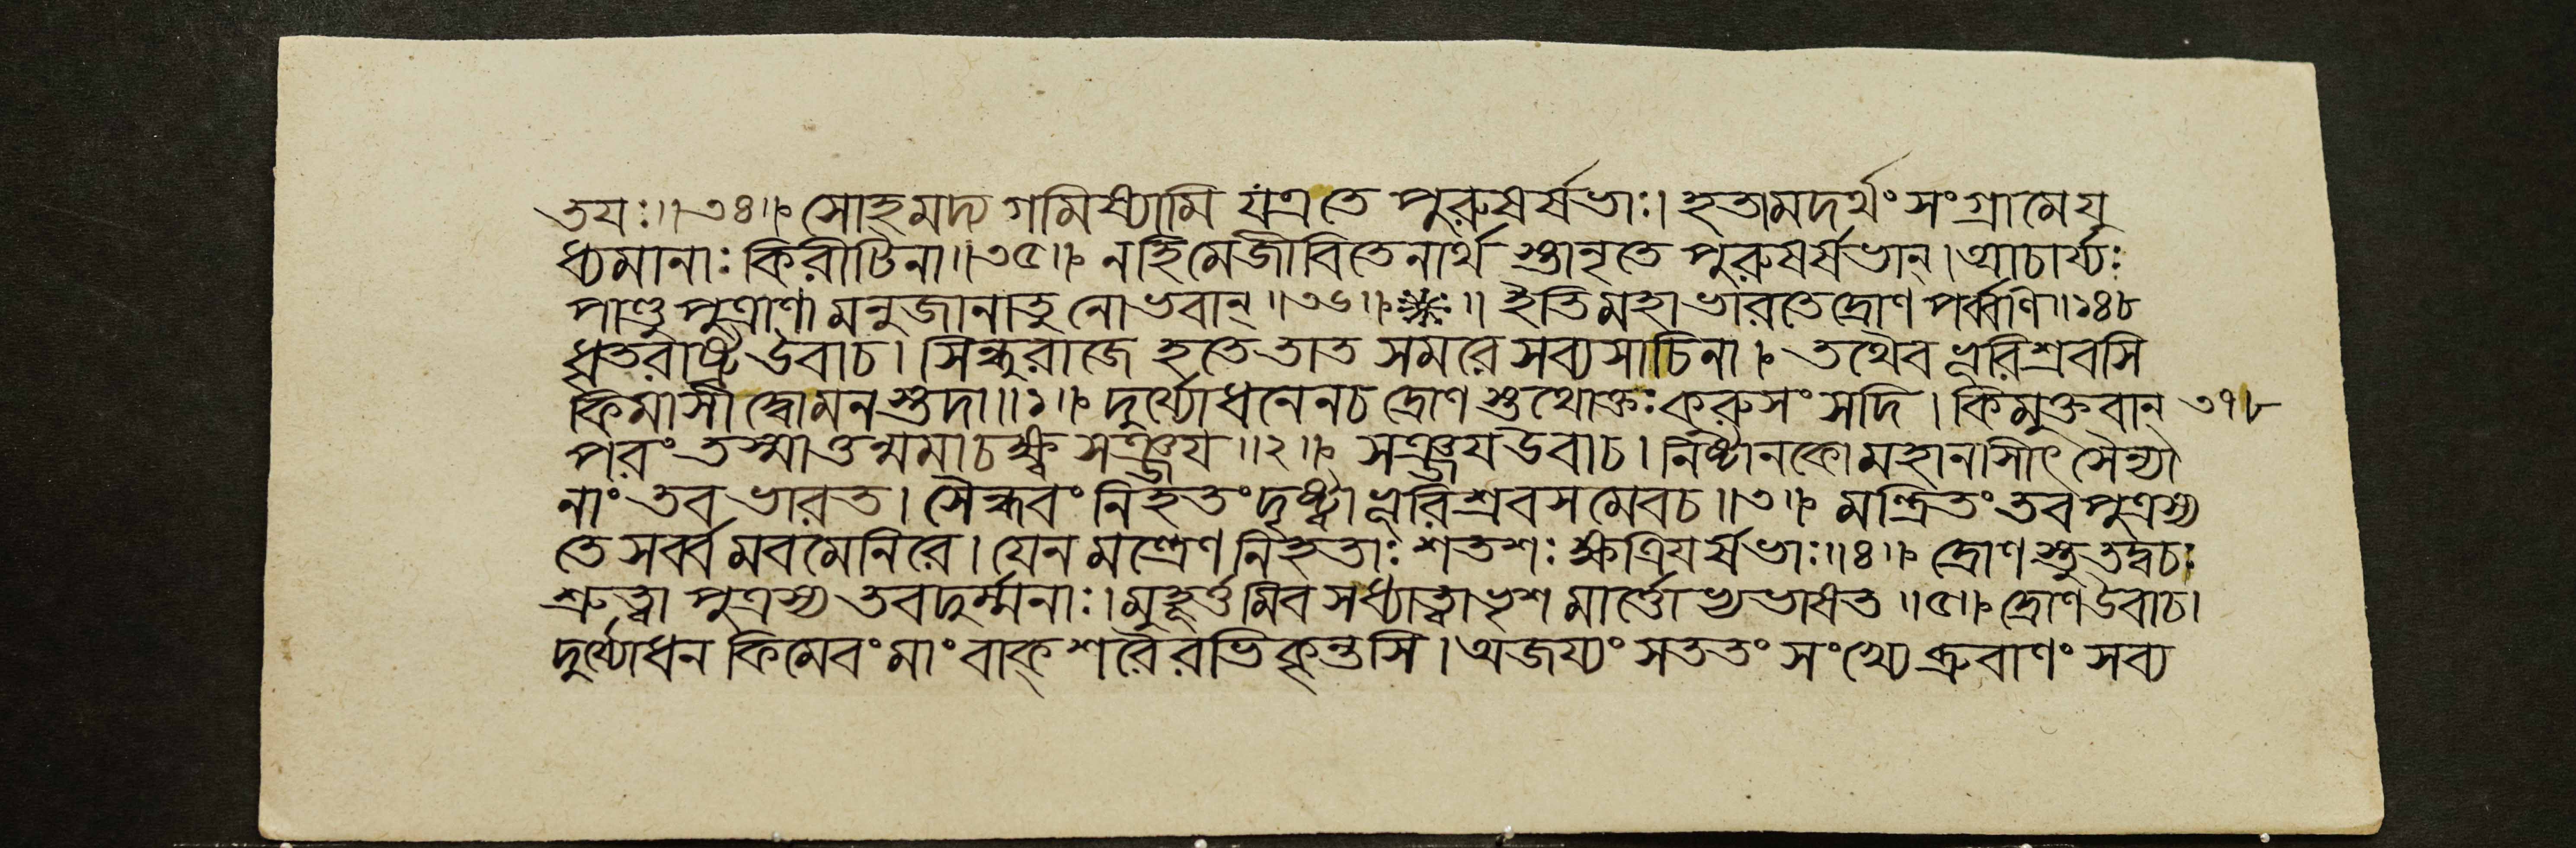 তযঃ॥৩৪॥ সোহমদ্য গমিষ্যামি যত্র তে পুরুষর্ষভাঃ। হতামদর্থং সংগ্রামে যু
ধ্যমানাঃ কিরীটিনা॥৩৫॥ নহি মে জীবিতেনার্থ স্তানৃতে পুরুষর্ষভান্। আচার্য্যঃ
পাণ্ডুপুত্রাণা মনুজানাতু নো ভবান্॥৩৬॥ ইতি মহাভারতে দ্রোণপর্ব্বণি॥১৪৮
ধৃতরাষ্ট্র উবাচ। সিন্ধুরাজে হতে তাত সমরে সব্যসাচিনা। তথৈব ভূরিশ্রবসি
কিমাসীদ্বোমনস্তদা॥১॥ দুর্য্যোধনেনচ দ্রোণ স্তথোক্তঃ করুসংসদি। কিমুক্তবান্ ৩৭৮
পরং তস্মাত্তন্মমাচক্ষ্ব সঞ্জয॥২॥ সঞ্জয উবাচ। নিষ্টানকো মহানাসীৎ সৈন্যা
নাং তব ভারত। সৈন্ধবং নিহতং দৃষ্ট্বা ভূরিশ্রবসমেবচ॥৩॥ মন্ত্রিতং তব পুত্রস্য
তে সর্ব্বমবমেনিরে। যেন মন্ত্রেণ নিহতাঃ শতশঃ ক্ষত্রিযর্ষভাঃ॥৪॥ দ্রোণস্তু তদ্বচঃ
শ্রুত্বা পুত্রস্য তব দুর্ম্মনাঃ। মুহূর্ত্তমিব সধ্যাত্বা ভৃশমার্ত্তোভ্যভাষত॥৫॥ দ্রোণ উবাচ।
দুর্য্যোধন কিমেবং মাং বাক্শরৈরভিকৃন্তসি। অজয্যং সততং সংখ্যে ব্রুবাণং সব্য